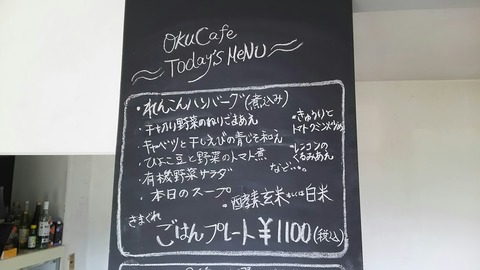 OkuCafe
Today's MeNu
・れんこんハンバーグ(煮込み)
・千切り野菜のねりごまあえ
・キャベツと干しえびの青じそ和え
・ひよこ豆と野菜のトマト煮
・有機野菜サラダ
・本日のスープ
・きゅうりと
トマトの
・レンコンの
くるみあえ
など…。
・酵素玄米 又は 白米
きまぐれ
ごはんプレート ¥1100(税込)